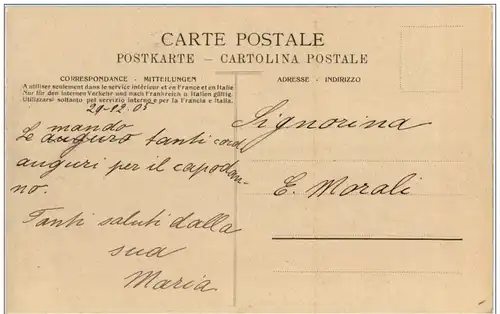 CARTE POSTALE
POSTKARTE – CARTOLINA POSTALE
CORRESPONDANCE - MITTEILUNGEN
A utiliser seulement dans le service intérieur et en France et en Italie
Nur für den internen Verkehr und nach Frankreich u Italien gültig.
Utilizzarsi soltanto pel servizio interno e per la Francia e Italia.
ADRESSE - INDIRIZZO
29-12.05
mando
Le auguro tanti cord
auguri per il capodan-
no.
Tanti saluti dalla
sua
Maria
Signorina
E. Morali